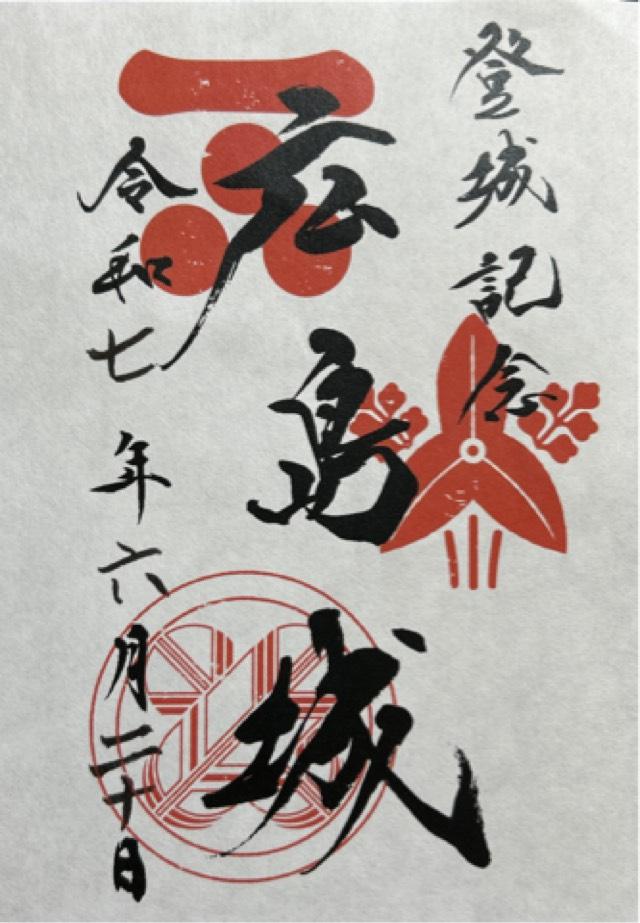 登城記念
広島城
令和七年六月二十日